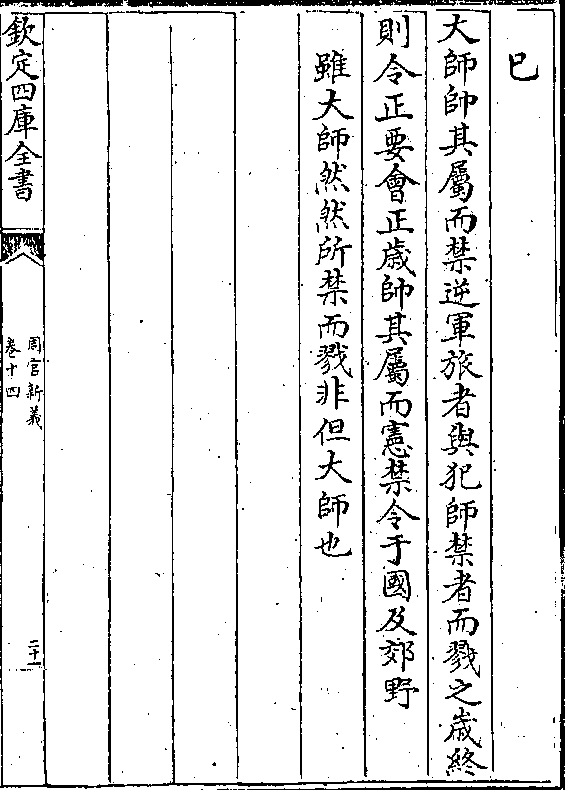 已
大師帥其屬而禁逆軍旅者與犯師禁者而戮之歲終
則令正要會正歲帥其屬而憲禁令于國及郊野
雖大師然然所禁而戮非但大師也
欽定四庫全書
周官新義
卷十四
二十一